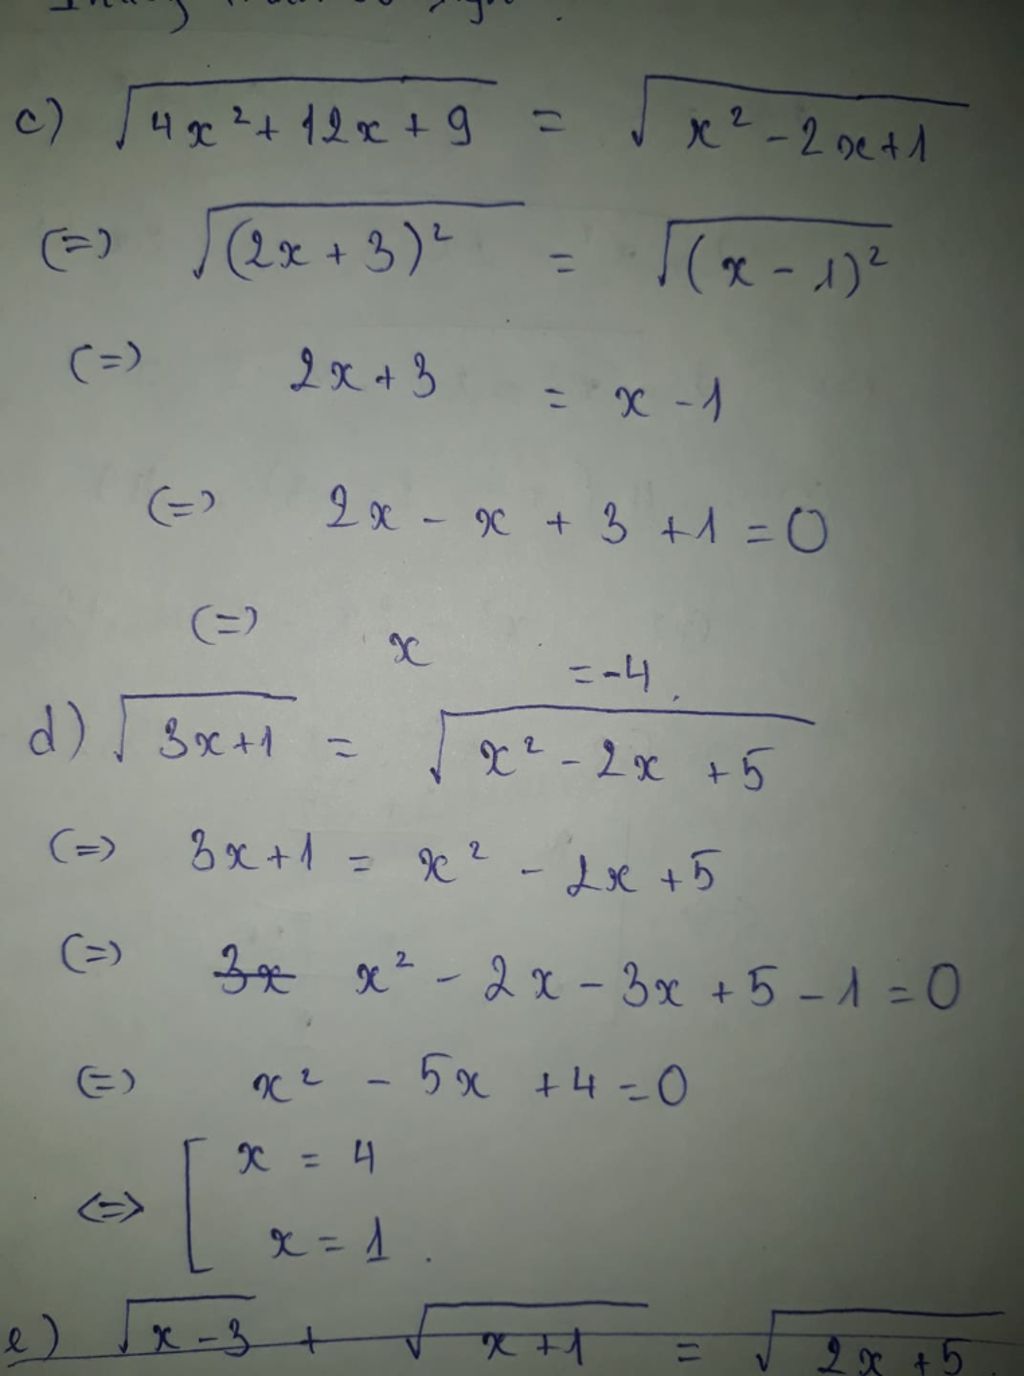 c) √(4x² + 12x + 9) = √(x² - 2x + 1)
(=) √((2x + 3)²) = √((x - 1)²)
(=) 2x + 3 = x - 1
(=) 2x - x + 3 + 1 = 0
(=) x = -4.
d) √(3x+1) = √(x² - 2x + 5)
(=) 3x + 1 = x² - 2x + 5
(=) ~~3x~~ x² - 2x - 3x + 5 - 1 = 0
(=) x² - 5x + 4 = 0
<=> [ x = 4
x = 1.
e) √(x - 3) + √(x + 1) = √(2x + 5)